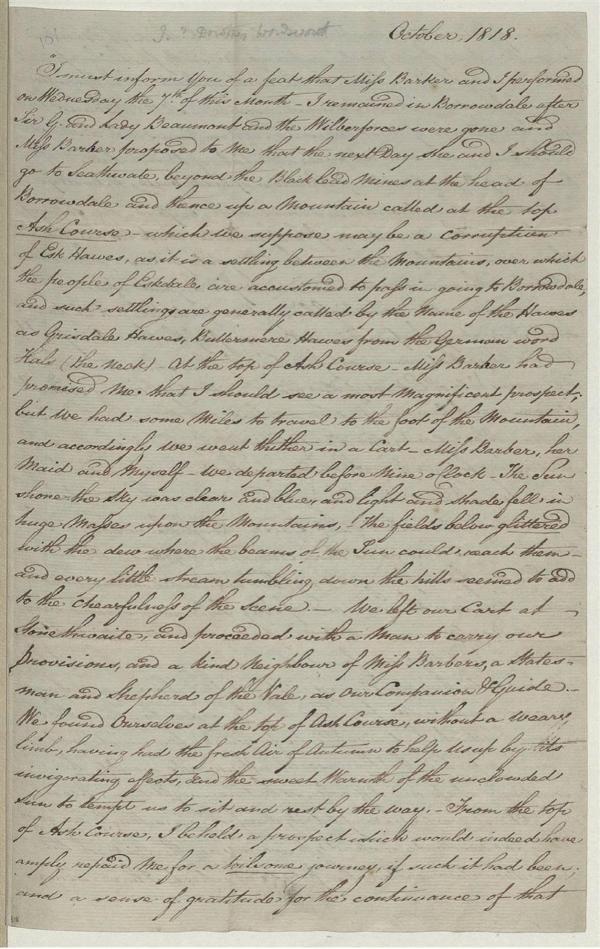 Dorothy Wordsworth
October, 1818.
"I must inform you of a feat that Miss Barker and I performed
on Wednesday the 7th of this Month – I remained in Borrowdale after
Sir G. and Lady Beaumont and the Wilberforces were gone and
Miss Barker proposed to me that the next Day she and I should
go to Seathwaite, beyond the Black lead Mines at the head of
Borrowdale and thence up a Mountain called at the top
Ash Course – which we suppose may be a corruption
of Esk Hawes, as it is a settling between the Mountains, over which
the people of Eskdale are accustomed to pass in going to Borrowdale,
and such settlings are generally called by the Name of the Hawes
as Grisdale Hawes, Buttermere Hawes from the German word
Hals (the neck) – At the top of Ash Course – Miss Barker had
promised me that I should see a most Magnificent prospect;
but we had some Miles to travel to the foot of the Mountain,
and accordingly we went thither in a Cart – Miss Barker, her
Maid and Myself – we departed before Nine o'Clock – The Sun
shone – the sky was clear and blue, and light and shade fell in
huge Masses upon the Mountains, – The fields below glittered
with the dew where the beams of the Sun could reach them –
and every little stream tumbling down the hills seemed to add
to the chearfulness of the Scene – We left our Cart at
Stonethwaite, and proceeded with a Man to carry our
provisions, and a kind Neighbour of Miss Barbers, a States-
man and shepherd of the Vale, as our Companion & Guide. –
We found Ourselves at the top of Ash Course, without a weary
limb, having had the fresh Air of Autumn to help us up by its
invigorating effects, and the sweet Warmth of the unclouded
sun to tempt us to sit and rest by the way. – From the top
of Ash Course, I beheld a prospect which would indeed have
amply repaid me for a toilsome journey, if such it had been;
and a sense of gratitude for the continuance of that